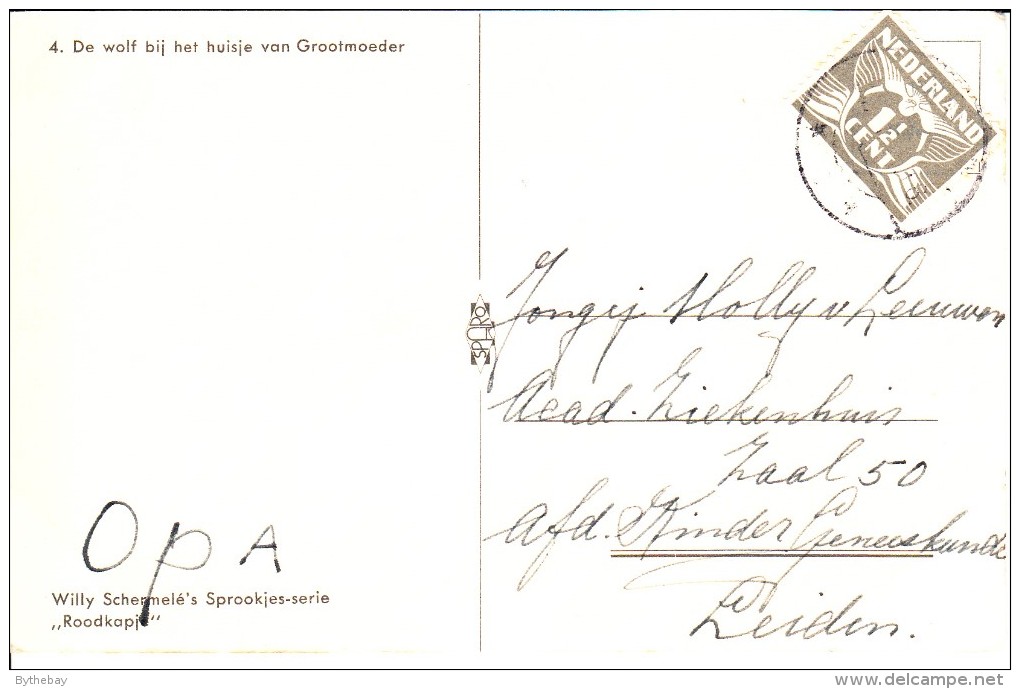 4. De wolf bij het huisje van Grootmoeder
NEDERLAND
1½
CENT
SPARO
Jongej Holly v Leeuwen
Acad. Ziekenhuis
Zaal 50
Afd. Kinder Geneeskunde
Leiden.
OpA
Willy Schermelé's Sprookjes-serie
„Roodkapje"
Bythebay
www.delcampe.net